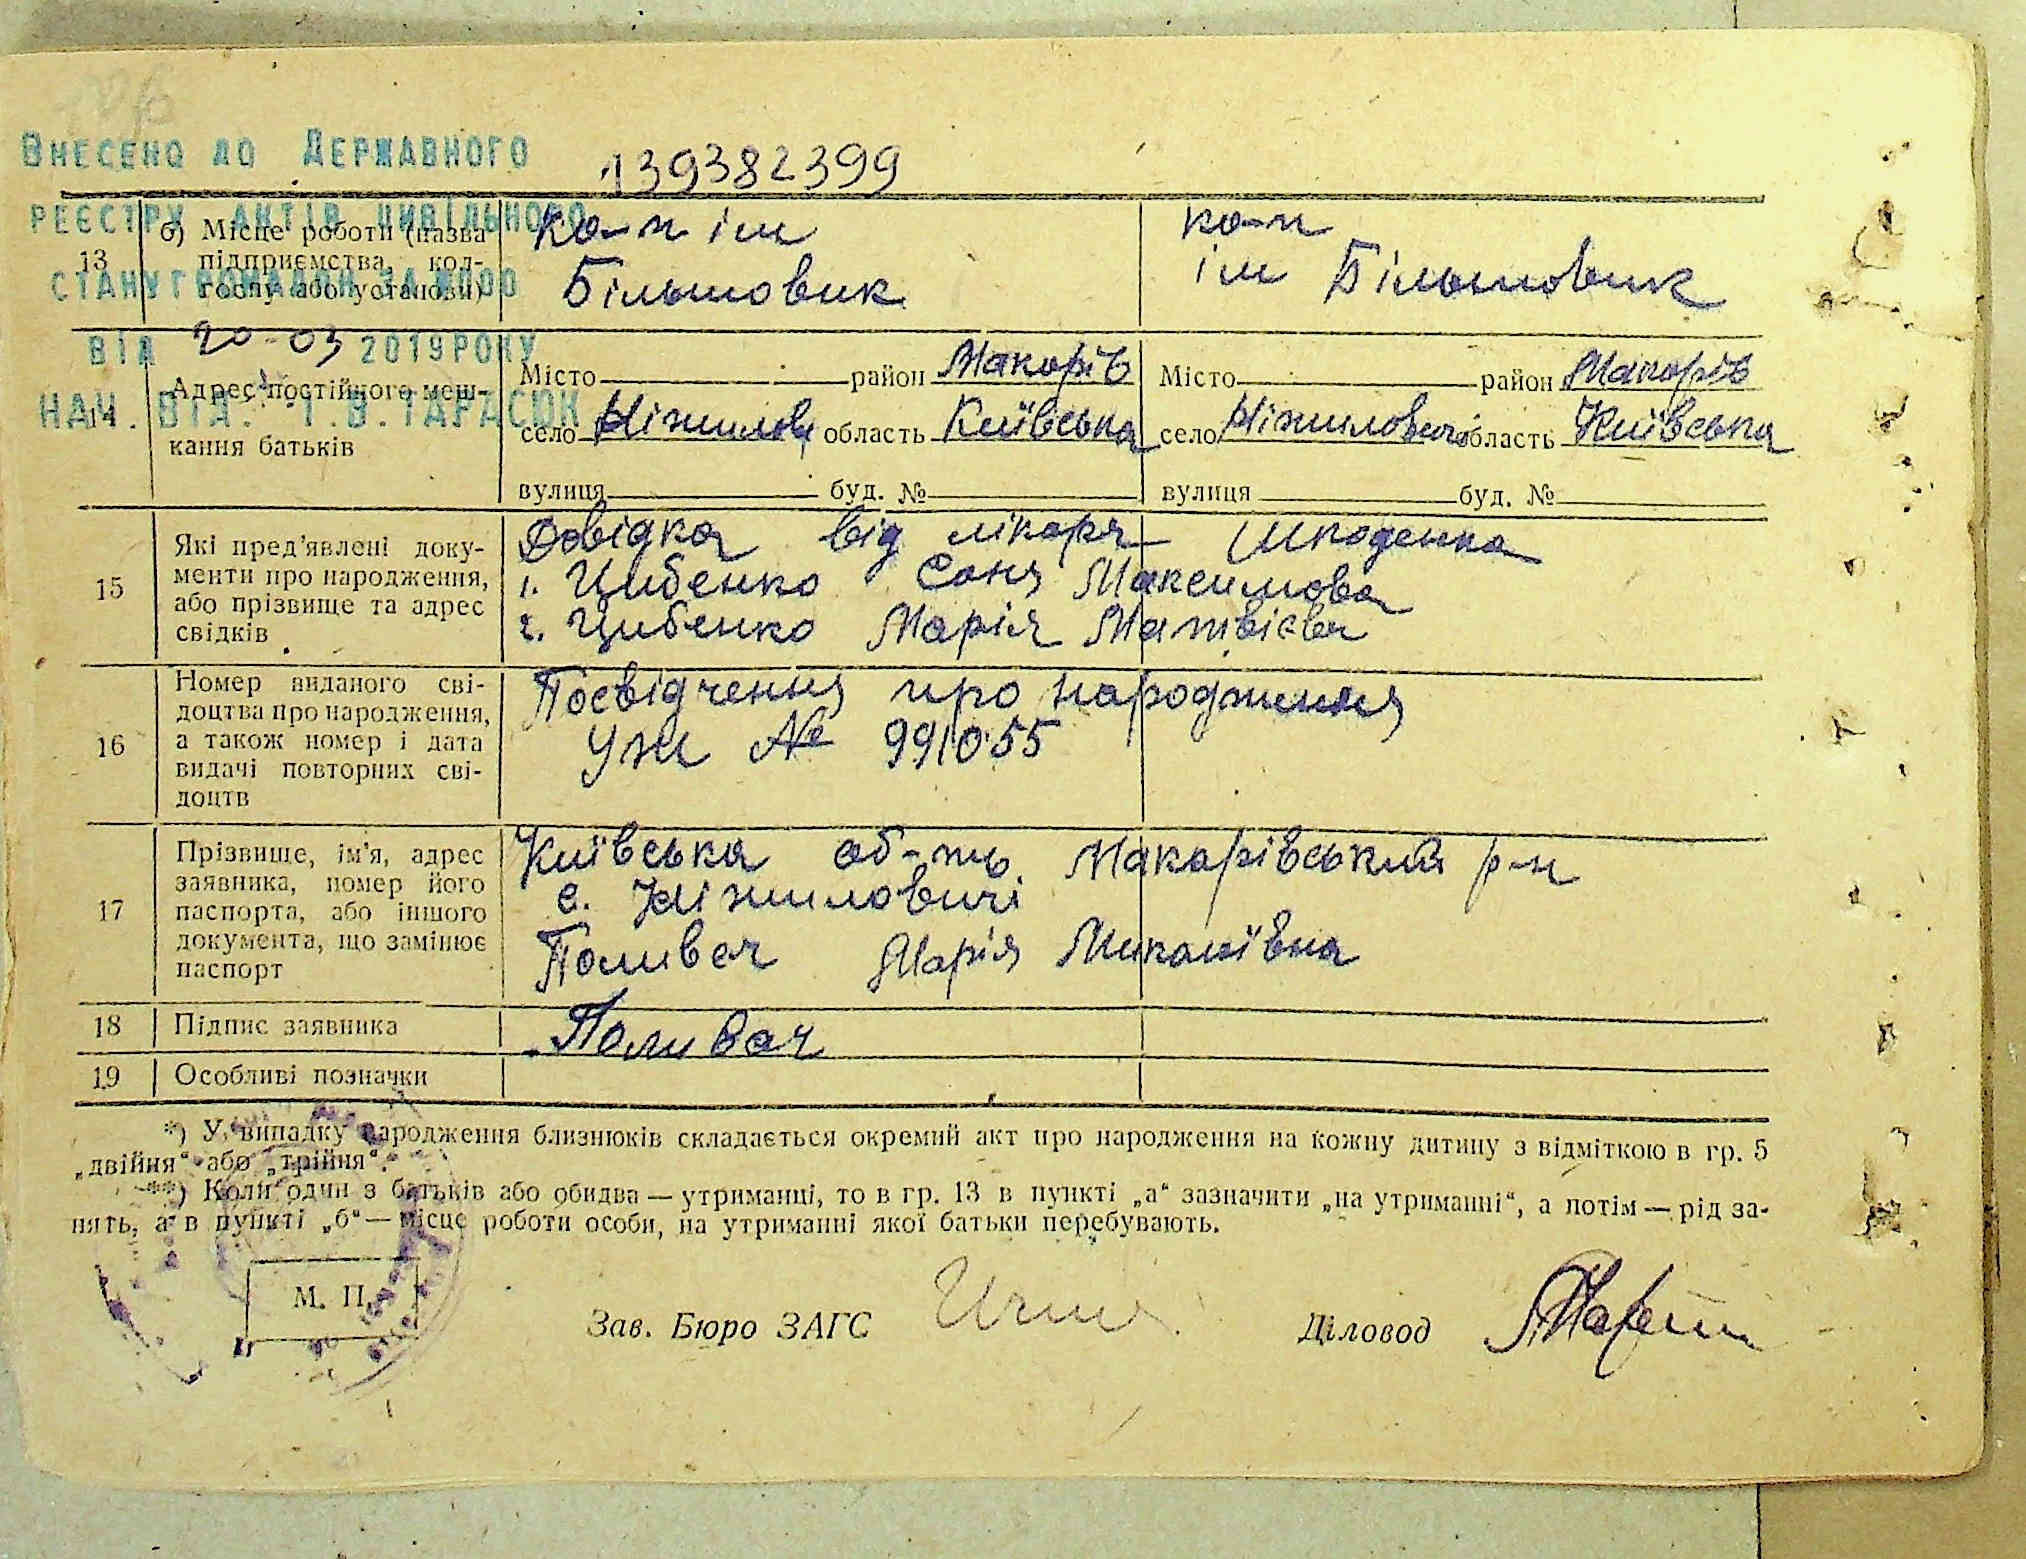 Внесено до Державного
139382399
реєстру актів цивільного
стану громадян за №00
від 20 03 2019 року
нач. від. І.В. Тарасюк
13
б) Місце роботи (назва
підприємства, кол-
госпу або установи)
ко-п ім
Більшовик
ко-п
ім Більшовик
14
Адрес постійного меш-
кання батьків
Місто район Макарів
село Ніжилов область Київська
вулиця буд. №
Місто район Макарів
село Ніжиловичі область Київська
вулиця буд. №
15
Які пред'явлені доку-
менти про народження,
або прізвище та адрес
свідків
Довідка від лікаря Шкоденка
1. Цибенко Соня Максимова
2. Цибенко Марія Матвієва
16
Номер виданого сві-
доцтва про народження,
а також номер і дата
видачі повторних сві-
доцтв
Посвідчення про народження
УЖ № 991055
17
Прізвище, ім'я, адрес
заявника, номер його
паспорта, або іншого
документа, що замінює
паспорт
Київська об-ть Макарівський р-н
с. Ніжиловичі
Поливач Марія Миколаївна
18
Підпис заявника
Поливач
19
Особливі позначки
*) У випадку народження близнюків складається окремий акт про народження на кожну дитину з відміткою в гр. 5
„двійня“ або „трійня“.
**) Коли один з батьків або обидва — утриманці, то в гр. 13 в пункті „а“ зазначити „на утриманні“, а потім — рід за-
нять, а в пункті „б“ — місце роботи особи, на утриманні якої батьки перебувають.
М. П.
Зав. Бюро ЗАГС
Діловод